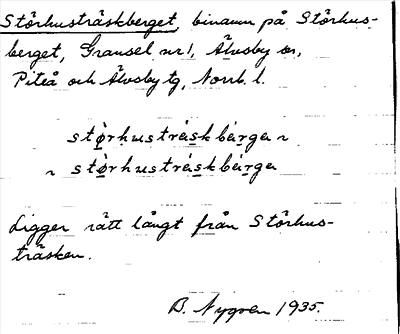 Störhusträskberget, binamn på Störhus-
berget, Gransel nr 1, Älvsby sn,
Piteå och Älvsby tg, Norrb. l.
stö̀rhusträskbärga ~
~ stö̀rhusträskbärga
Ligger rätt långt från Störhus-
träsken.
B. Nygren 1935.